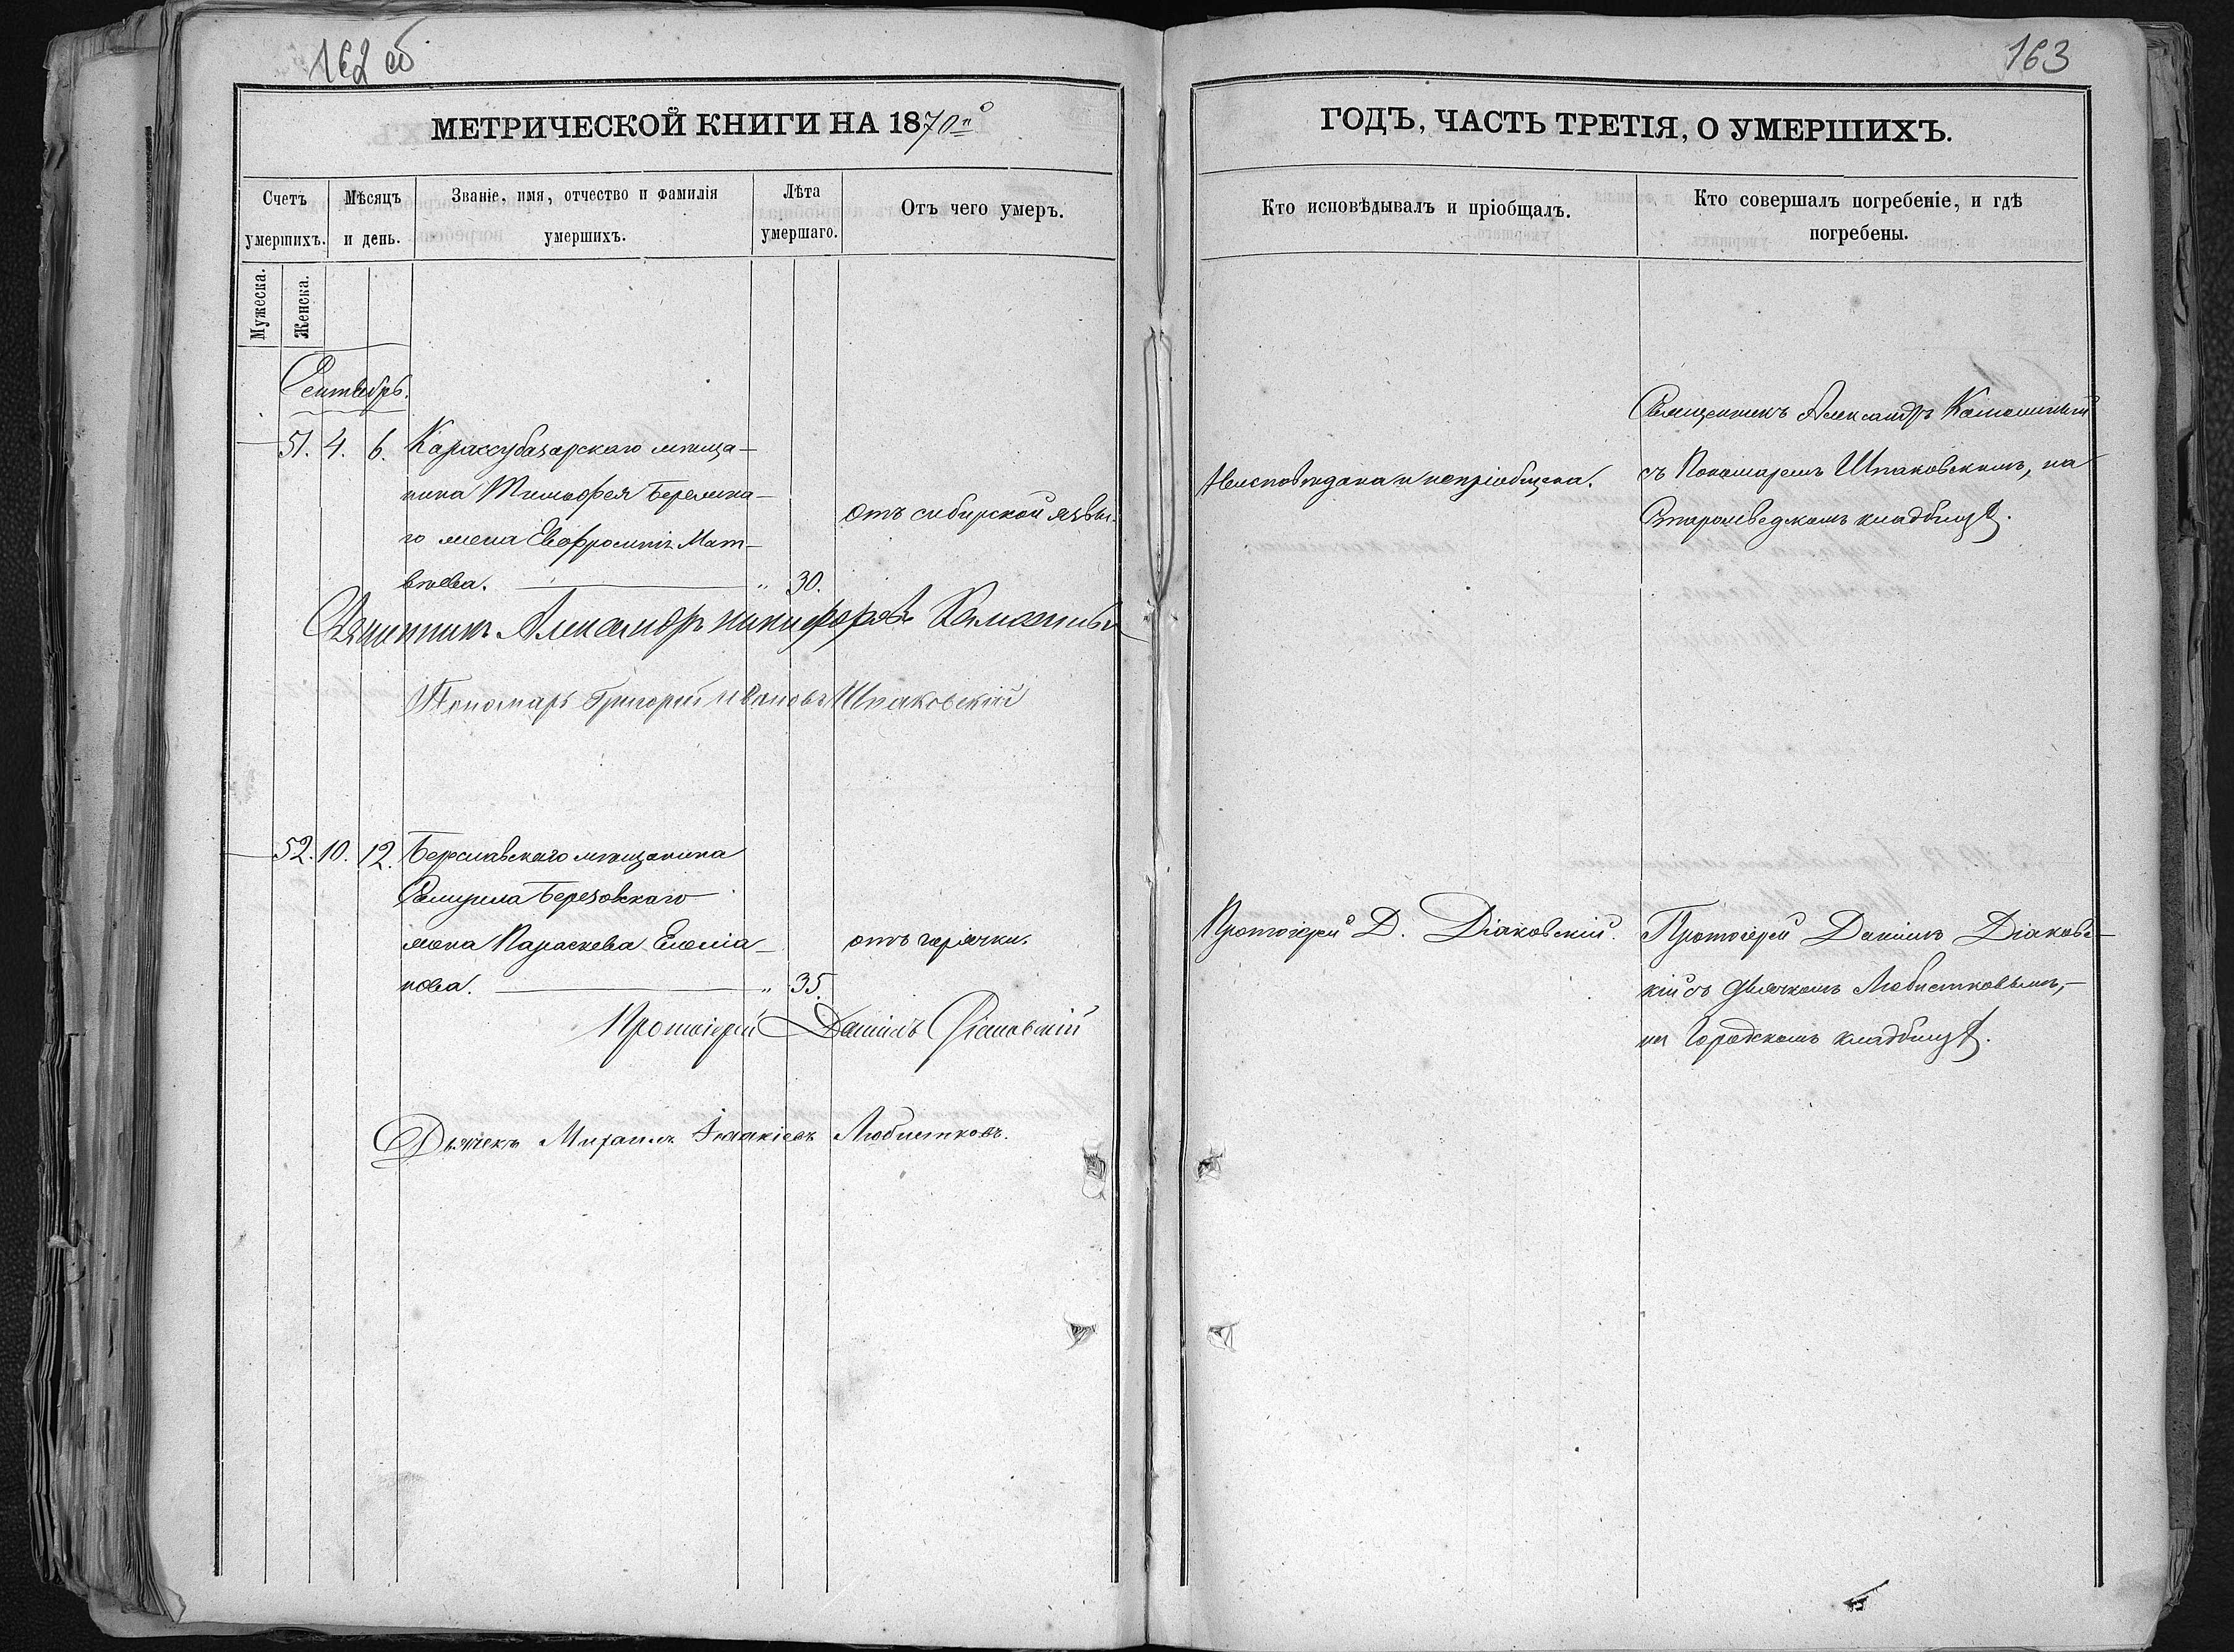 162 об
МЕТРИЧЕСКОЙ КНИГИ НА 1870й
Счетъ умершихъ.
Мѣсяцъ и день.
Званіе, имя, отчество и фамилія умершихъ.
Лѣта умершаго.
Отъ чего умеръ.
Мужеска.
Женска.
Сентябрь.
51. 4. 6. Карассубазарскаго мѣща-
нина Тимофея
го жена Евфросинія Мат-
вѣева. " 30.
отъ сибирской язвы.
Священникъ Александръ Никифоровъ
Пономарь Григорій Ивановъ Шпаковскій
52. 10. 12. Бериславскаго мѣщанина
Самуила Березовскаго
жена Параскева
нова. " 35.
отъ горячки.
Протоіерей Даніилъ Діаковскій
Дьячекъ Михаилъ Іоакіевъ Любистковъ.
163
ГОДЪ, ЧАСТЬ ТРЕТІЯ, О УМЕРШИХЪ.
Кто исповѣдывалъ и пріобщалъ.
Кто совершалъ погребеніе, и гдѣ погребены.
Неисповѣдана и непріобщена.
Священникъ Александръ
съ Пономаремъ Шпаковскимъ, на
кладбищѣ.
Протоіерей Д. Діаковскій.
Протоіерей Даніилъ Діаковс-
кій съ дьячкомъ Любистковымъ,
на Городскомъ кладбищѣ.